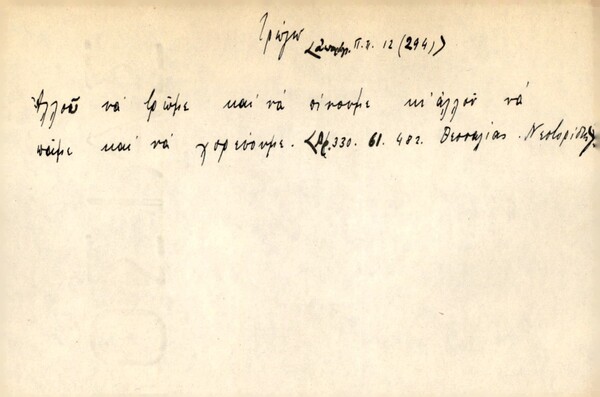 Τρώγω
Π.π. 12 (294)
Ἀλλοῦ νὰ τρῶμε καὶ νὰ πίνουμε κι' ἀλλοῦ νὰ
πᾶμε καὶ νὰ χορεύουμε. 330. 61. 482. Θεσσαλίας. Νεστορίδης